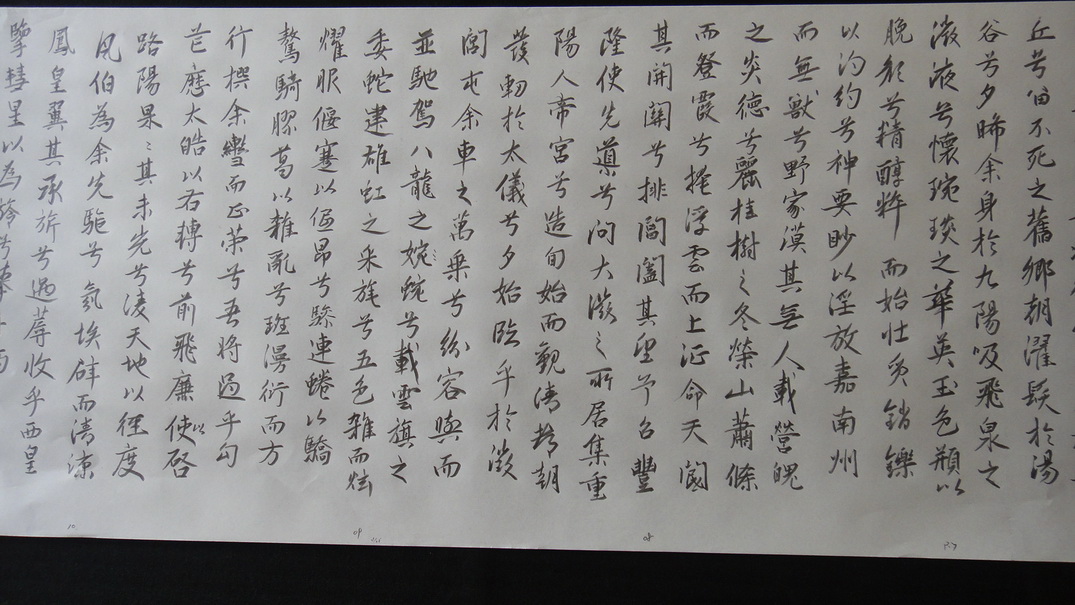 丘兮留不死之舊鄉朝濯髮於湯
谷兮夕晞余身於九陽吸飛泉之
微液兮懷琬琰之華英玉色頩以
脕顏兮精醇粹而始壯質銷鑠
以汋約兮神要眇以淫放嘉南州
之炎德兮麗桂樹之冬榮山蕭條
而無獸兮野寂漠其無人載營魄
而登霞兮掩浮雲而上征命天閽
其開關兮排閶闔其望予召豐
隆使先導兮問大微之所居集重
陽入帝宮兮造旬始而觀清都朝
發軔於太儀兮夕始臨乎於微
閭屯余車之萬乘兮紛容與而
並馳駕八龍之婉婉兮載雲旗之
委蛇建雄虹之采旄兮五色雜而炫
耀服偃蹇以低昂兮驂連蜷以驕
驁騎膠葛以雜亂兮班漫衍而方
行撰余轡而正策兮吾將過乎勾
芒歷太皓以右轉兮前飛廉使以啓
路陽杲〻其未光兮凌天地以徑度
風伯為余先驅兮氛埃辟而清涼
鳳皇翼其承旂兮遇蓐收乎西皇
擥彗星以為旍兮
10
09
08